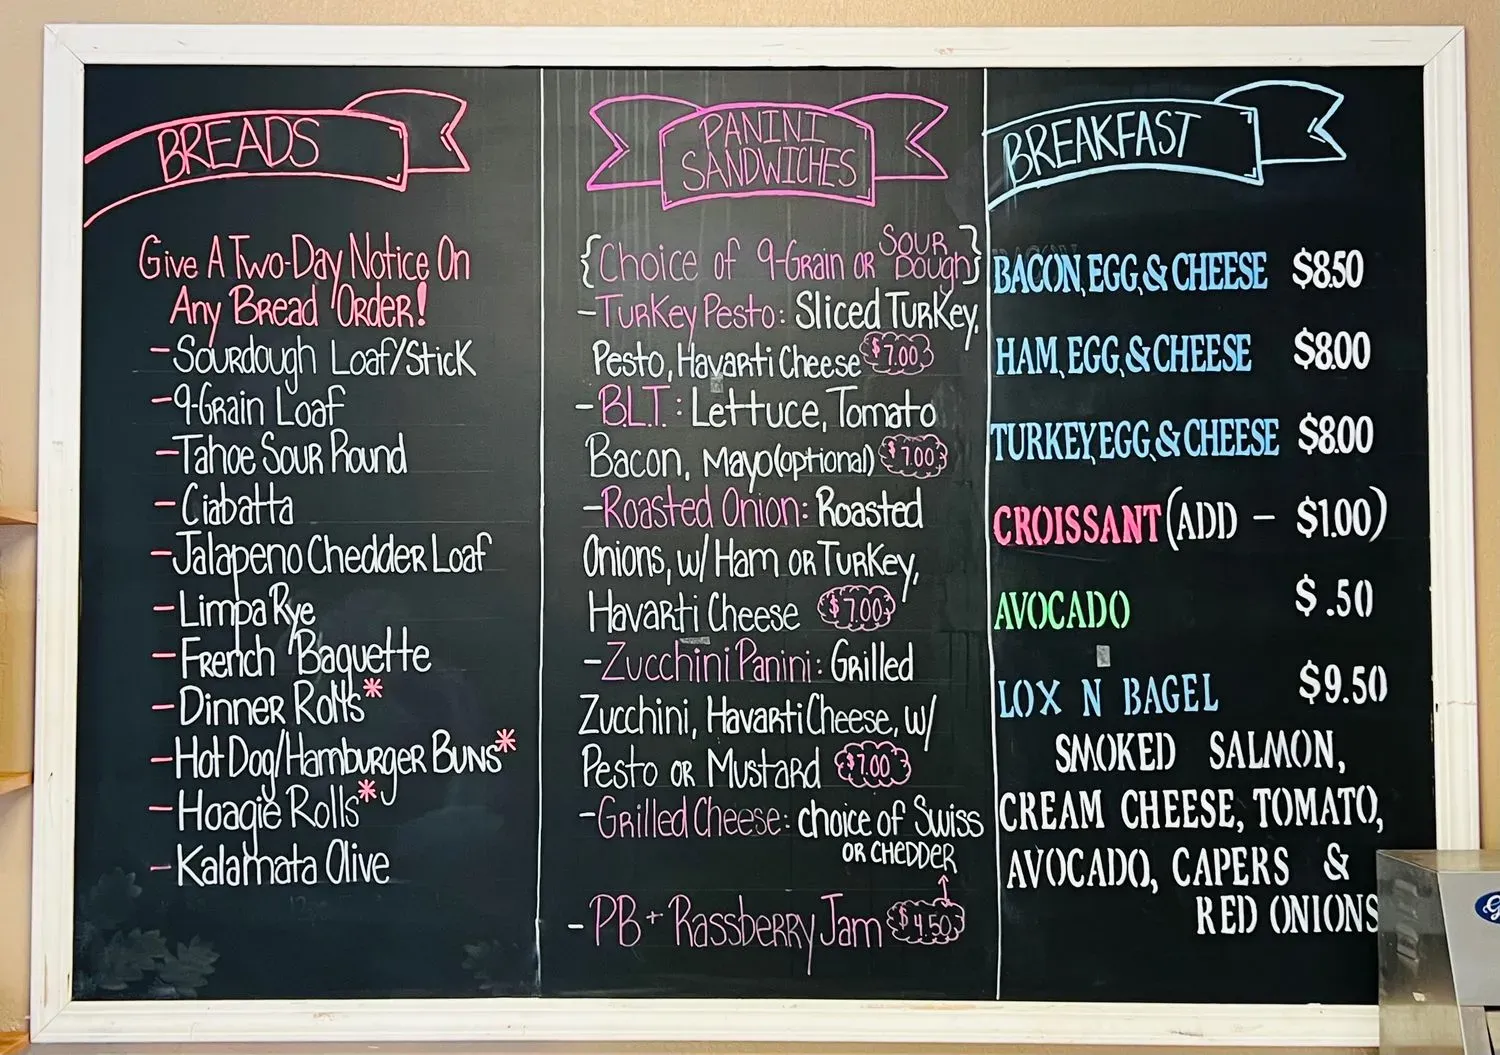 BREADS
Give A Two-Day Notice On
Any Bread Order!
- Sourdough Loaf/Stick
- 9-Grain Loaf
- Tahoe Sour Round
- Ciabatta
- Jalapeno Chedder Loaf
- Limpa Rye
- French Baquette
- Dinner Rolls*
- Hot Dog/Hamburger Buns*
- Hoagie Rolls*
- Kalamata Olive
PANINI
SANDWICHES
{Choice of 9-Grain or Sour Dough}
- Turkey Pesto: Sliced Turkey,
Pesto, Havarti Cheese $7.00
- B.L.T.: Lettuce, Tomato
Bacon, Mayo (optional) $7.00
- Roasted Onion: Roasted
Onions, w/ Ham or Turkey,
Havarti Cheese $7.00
- Zucchini Panini: Grilled
Zucchini, Havarti Cheese, w/
Pesto or Mustard $7.00
- Grilled Cheese: choice of Swiss
or Chedder
- PB + Rassberry Jam $4.50
BREAKFAST
BACON, EGG, & CHEESE $8.50
HAM, EGG, & CHEESE $8.00
TURKEY, EGG, & CHEESE $8.00
CROISSANT (ADD - $1.00)
AVOCADO $.50
LOX N BAGEL $9.50
SMOKED SALMON,
CREAM CHEESE, TOMATO,
AVOCADO, CAPERS &
RED ONIONS